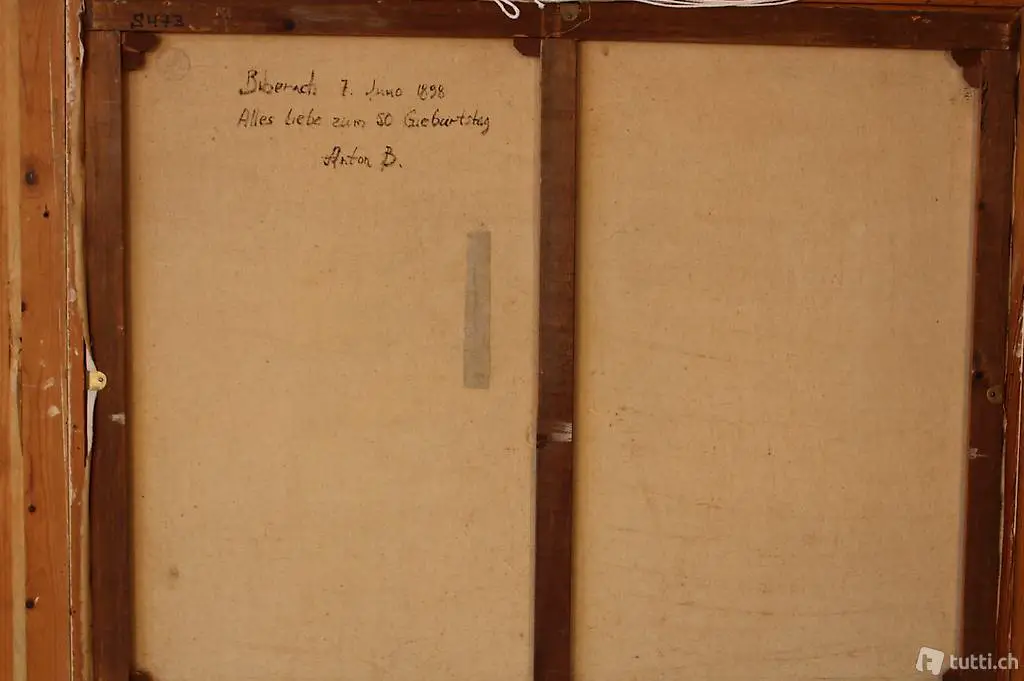 8473
Biberach 7. Juno 1898
Alles Liebe zum 50 Geburtstag
Anton B.
tutti.ch